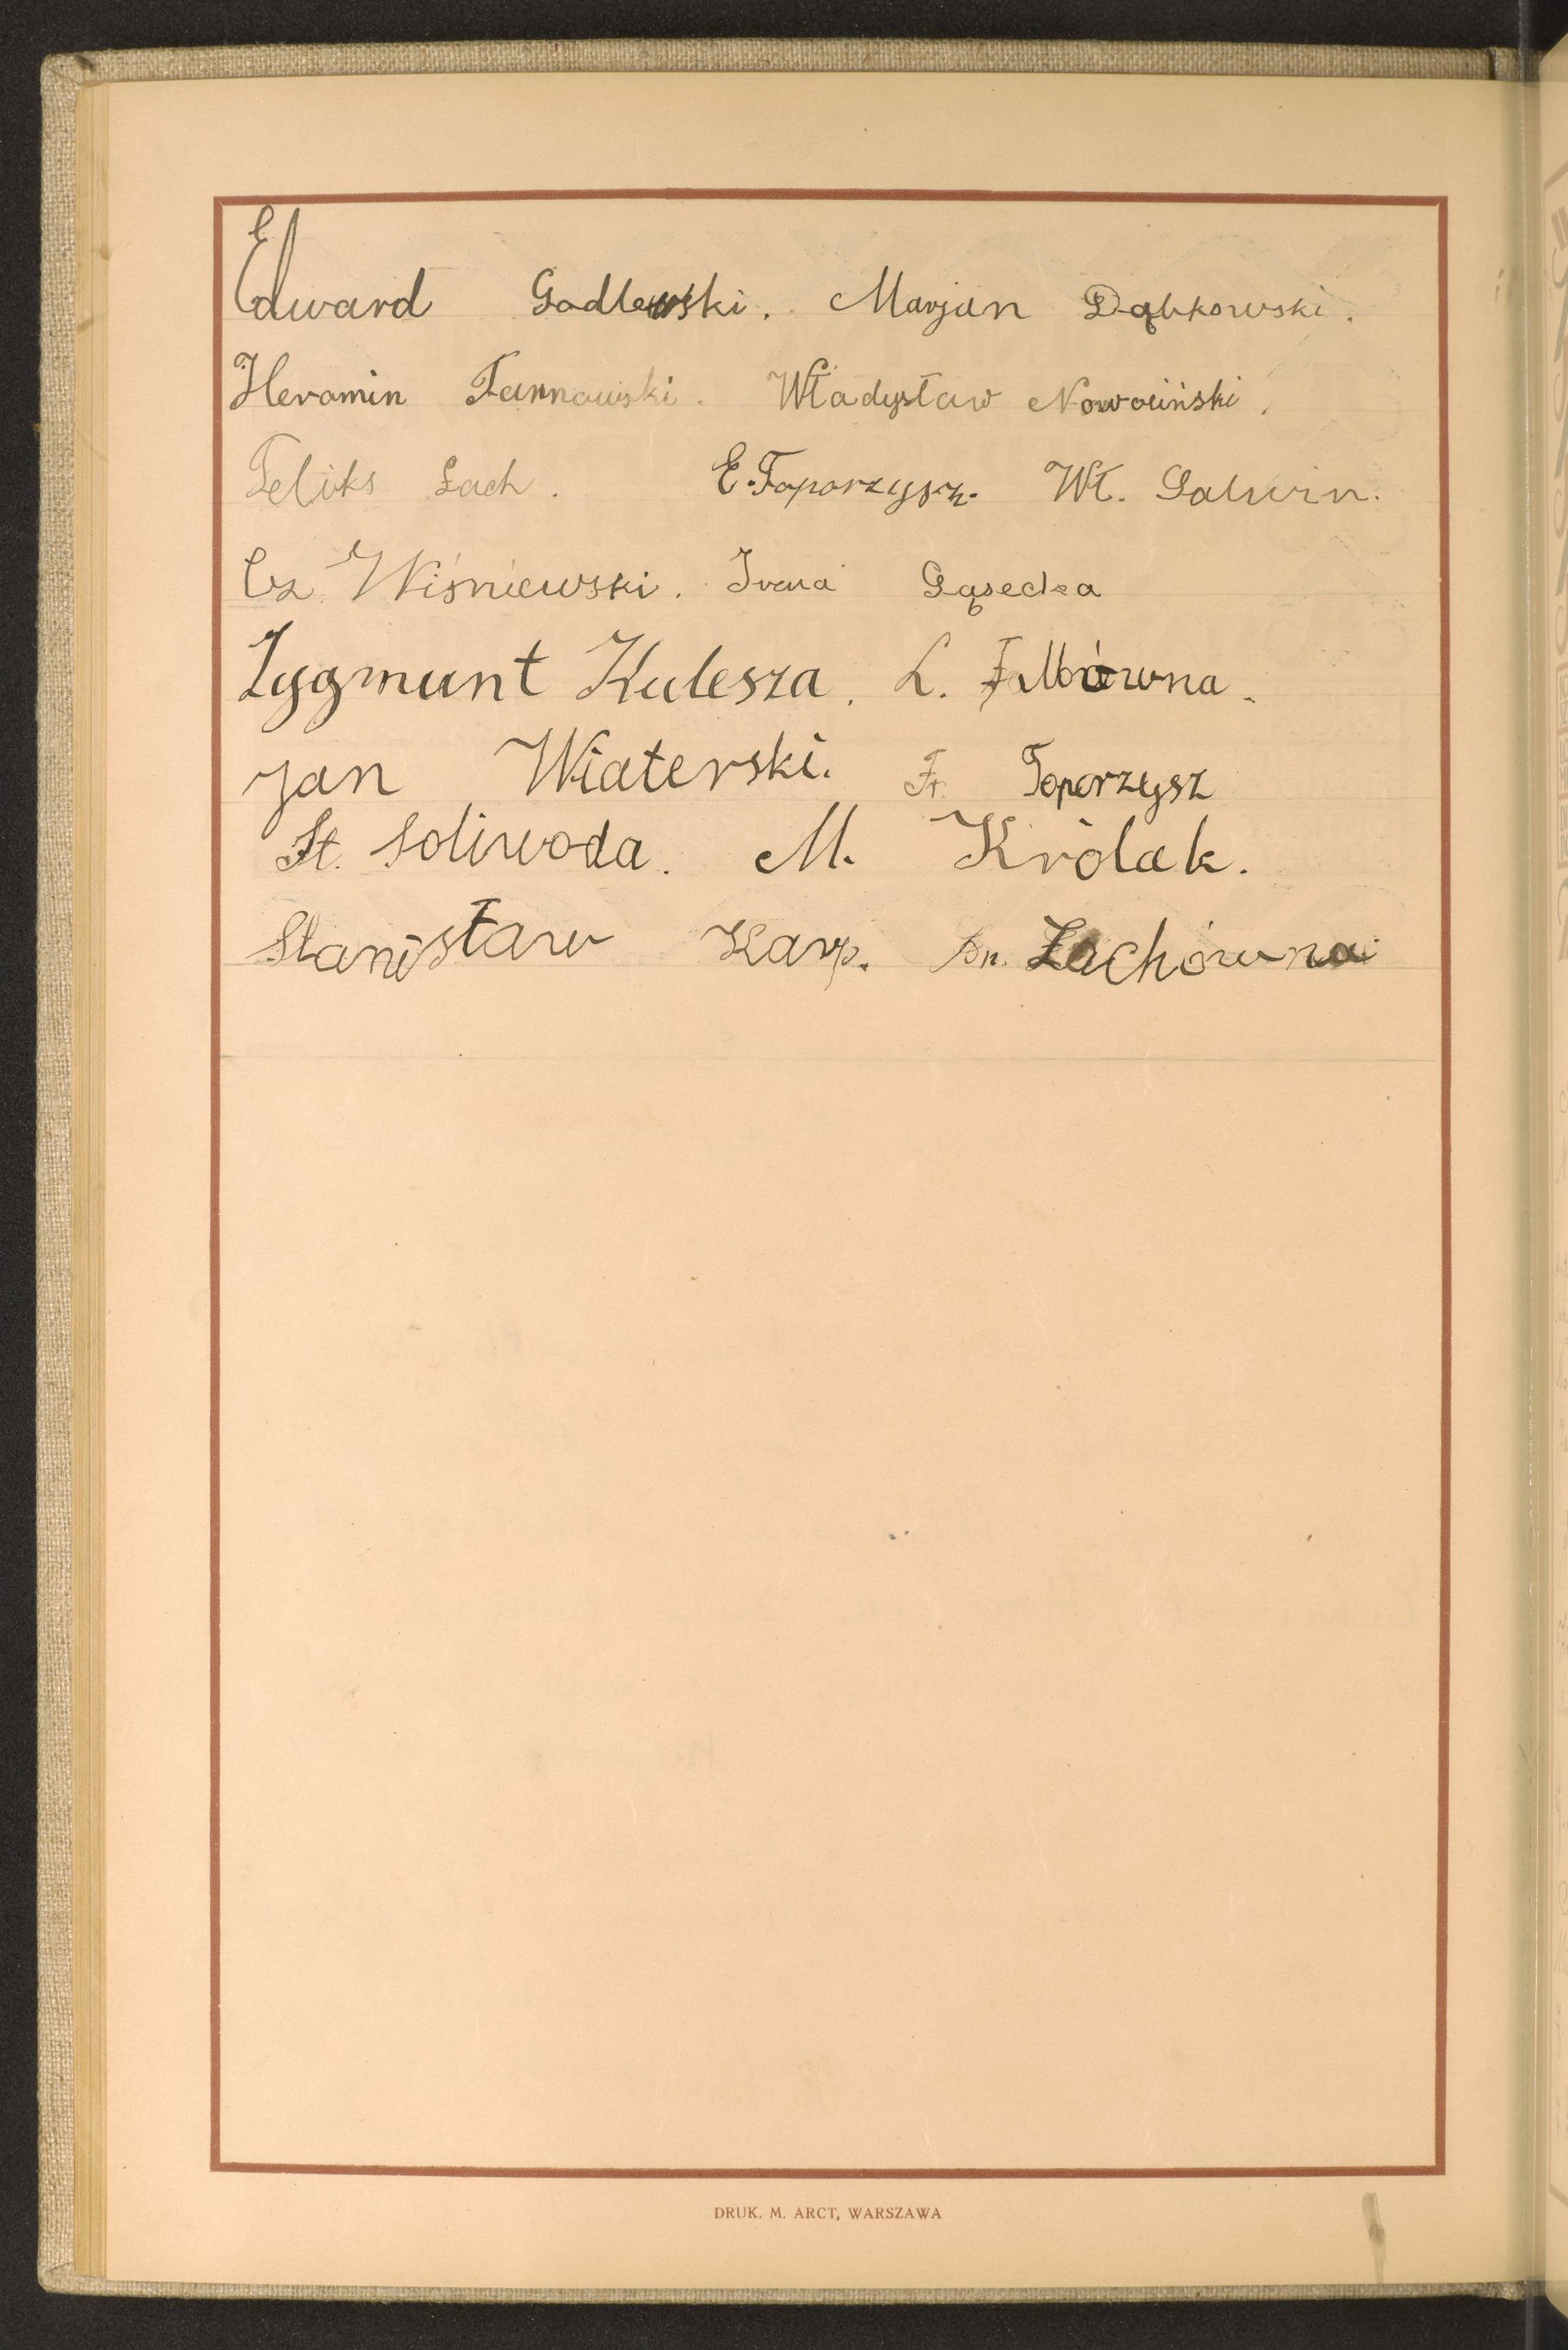 Edward Godlewski. Marjan Dąbkowski.
Heromin Tarnnowski. Władysław Nowociński.
Feliks Lach. E. Toporzysz. Wł. Galwin.
Cz. Wiśniewski. Irena Gąsecka
Zygmunt Kulesza. L. Falbówna.
Jan Wiaterski. Fr. Toporzysz
St. Soliwoda. M. Królak.
Stanisław Karp. An. Lachówna
DRUK. M. ARCT, WARSZAWA